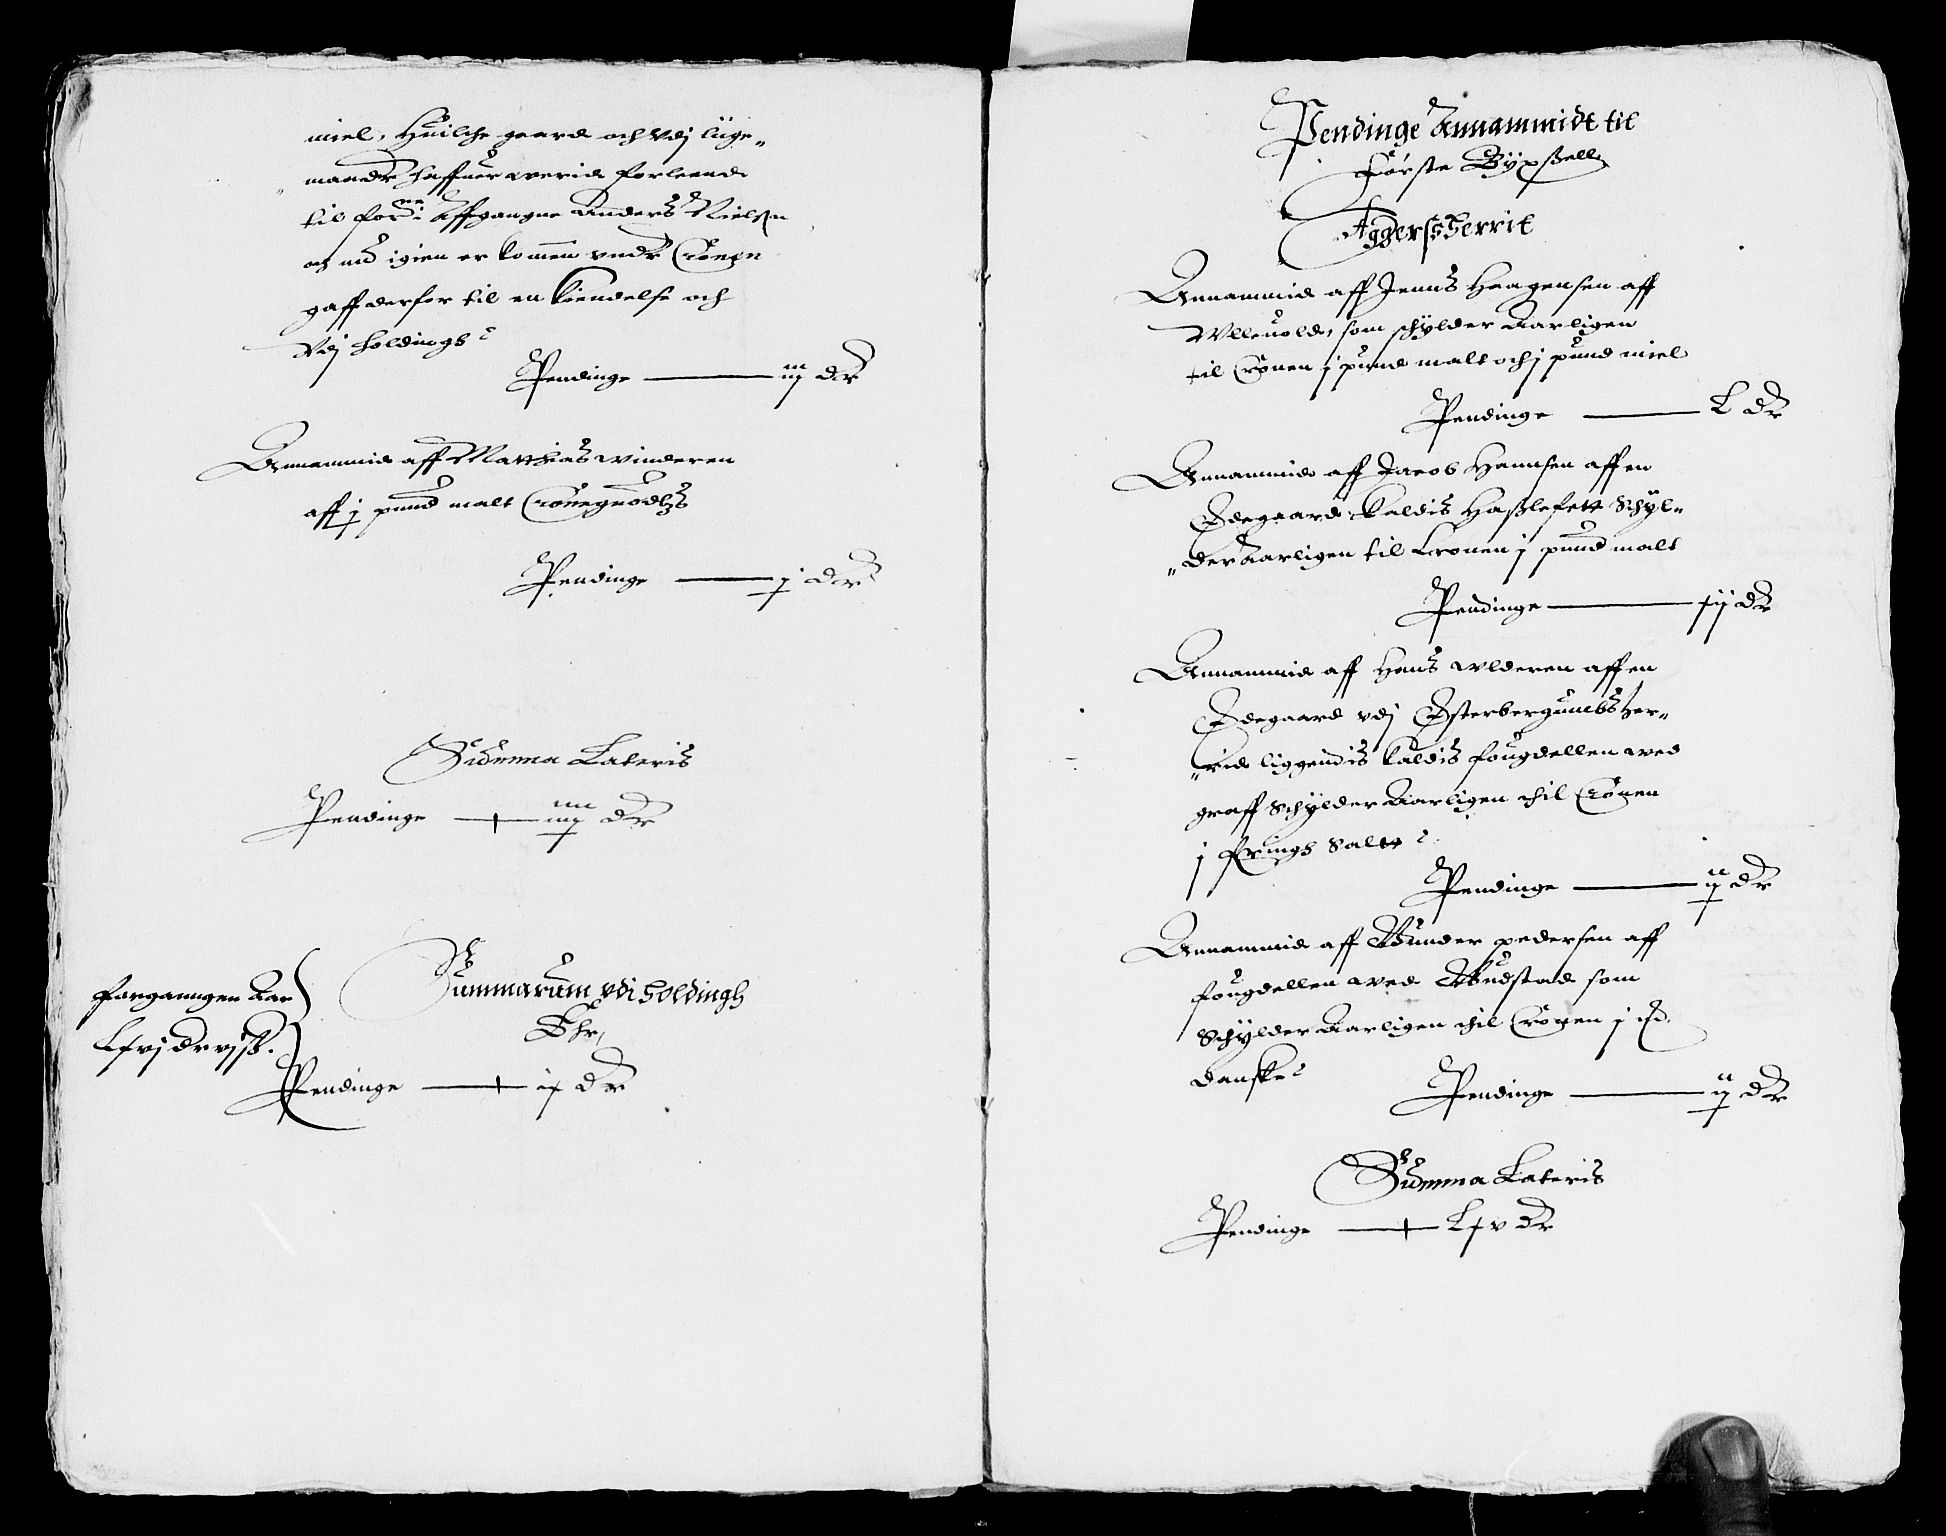 miel, Huilche gaard och vdj lüge„
„mandz haffuer werid forleend
til forne: Affgangne Anders Nielsen
og nu igien er kommen vnder Cronen
gaff derfor til en kiendelse och
vdj holdingh
Pendinge ——— iij dr
Annammid aff Matthias winderen
aff j pund malt Croneguodtz
Pendinge ——— j dr
Summa Lateris
Pendinge —+— dr
Summarum vdi Holdingh
Ohr
forganngen Aar
Lxvj dr vj ß.
Pendinge —+— ix dr
Pendinge Annammidt til
Første Bÿxßell
Aggersherrit
Annammid aff Jenns Haagensen aff
Wlleuold, som schÿlder Aarligen
til Cronen j pund malt och j pund miel
Pendinge ——— L dr
Annammid aff Jacob Hannsen aff en
Ødegaard kaldis Haßlefett Schÿl„
„der Aarligen til Cronen j pund malt
Pendinge ——— dr
Annammid aff Hans wlderen aff en
Ødegaard vdj Østerbergumbs Her„
„rid liggendis kaldis fougdellen wed
graff Schÿlder Aarligen thil Cronen
j fringh Salt
Pendinge ——— dr
Annammid aff Gunder pedersen aff
fougdellen wed Rudstad som
Schÿlder Aarligen thil Cronen j
danske
Pendinge ——— dr
Summa Lateris
Pendinge —+— Lxv dr